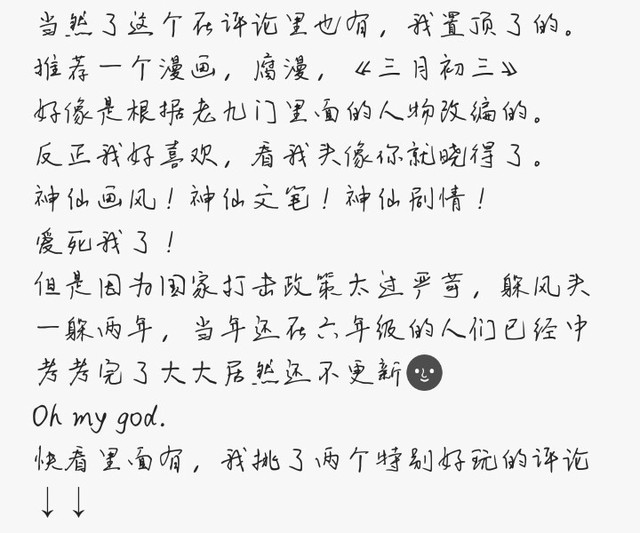 当然了这个在评论里也有，我置顶了的。
推荐一个漫画，腐漫，《三月初三》
好像是根据老九门里面的人物改编的。
反正我好喜欢，看我头像你就晓得了。
神仙画风！神仙文笔！神仙剧情！
爱死我了！
但是因为国家打击政策太过严苛，躲风头
一躲两年，当年还在六年级的人们已经中
考考完了大大居然还不更新🌚
Oh my god.
快看里面有，我挑了两个特别好玩的评论
↓↓